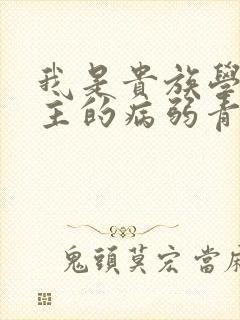 我是貴族學
主的病弱青
鬼頭莫宏 當麻